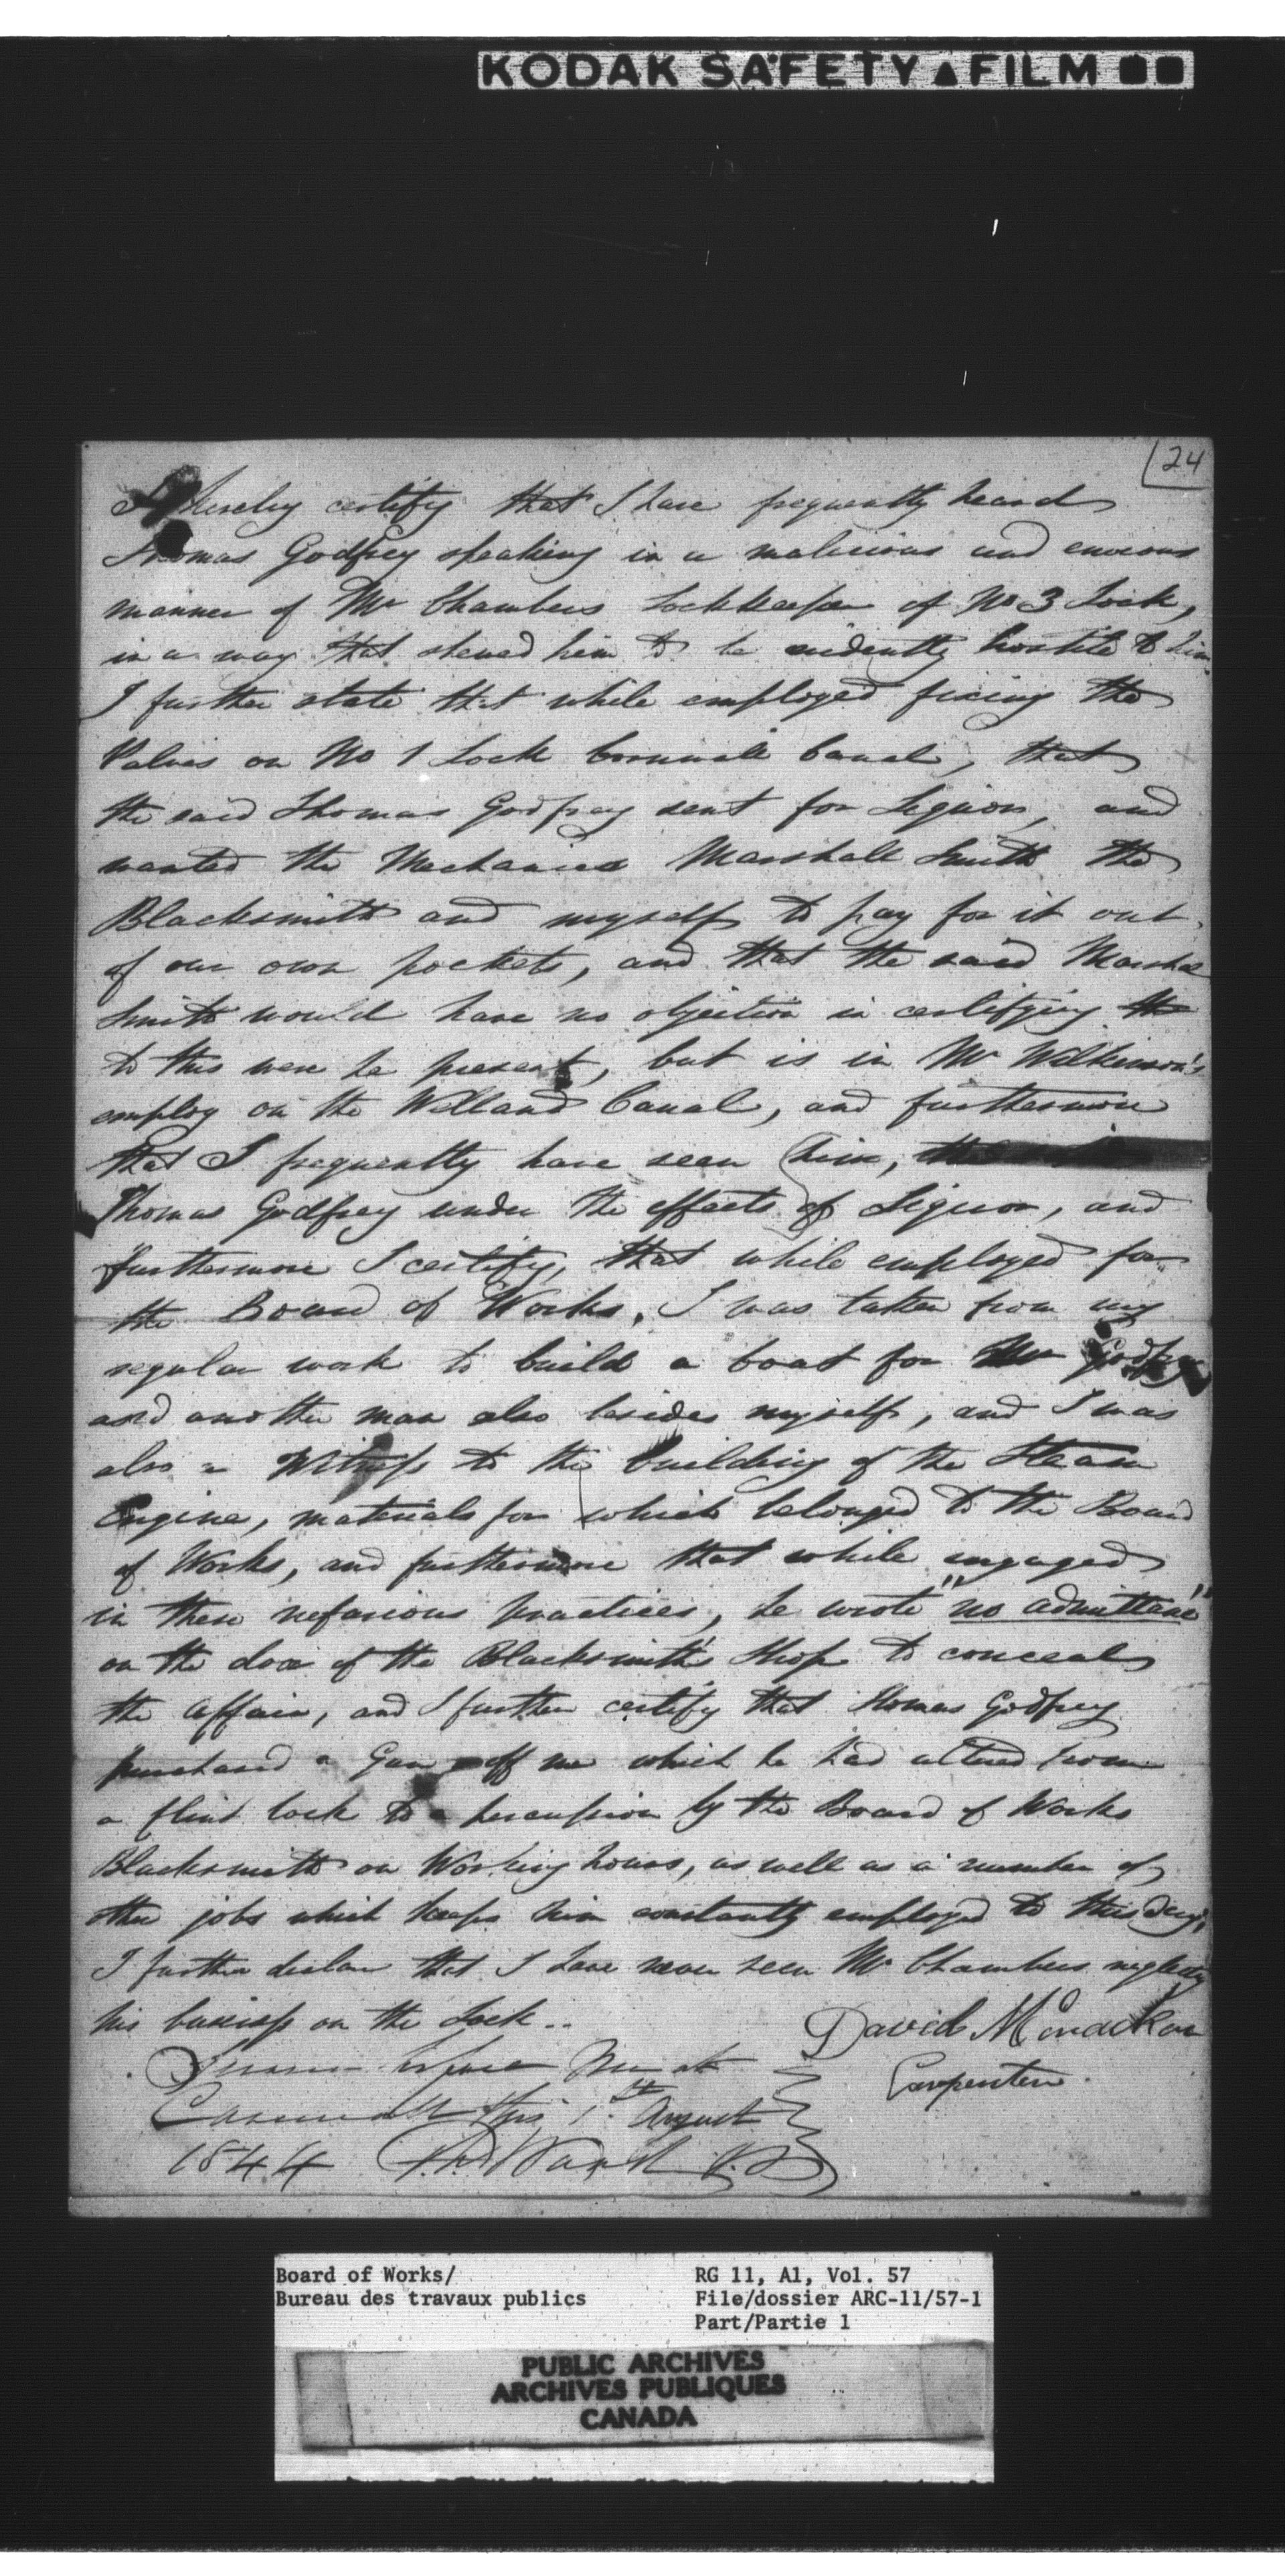 KODAK SAFETY FILM
24
I hereby certify that I have frequently heard
Thomas Godfrey speaking in a malicious and envious
manner of Mr Chambers Lockkeeper of No 3 Lock,
in a way that shewed him to be evidently hostile to him.
I further state that while employed fixing the
Valves on No 1 Lock Cornwall Canal, that
the said Thomas Godfrey sent for Liquor, and
wanted the Mechanics Marshall Smith the
Blacksmith and myself to pay for it out
of our own pockets, and that the said Marshal
Smith would have no objection in certifying the
to this were he present, but is in Mr Wilkinson's
employ on the Welland Canal, and furthermore
that I frequently have seen him, the
Thomas Godfrey under the effects of Liquor, and
furthermore I certify, that while employed for
the Board of Works, I was taken from my
regular work to build a boat for Mr Godfrey
and another man also besides myself, and I was
also a Witness to the building of the Steam
Engine, materials for which belonged to the Board
of Works, and furthermore that while engaged
in these nefarious practices, he wrote "no admittance"
on the door of the Blacksmith's Shop to conceal
the affair, and I further certify that Thomas Godfrey
purchased a Gun off me which he had altered from
a flint lock to a percussion by the Board of Works
Blacksmith on Working hours, as well as a number of
other jobs which keeps him constantly employed to this day,
I further declare that I have never seen Mr Chambers neglect
his business on the Lock..
David
Carpenter.
Sworn before Me at
Cornwall this 1st August
1844
Board of Works/
Bureau des travaux publics
RG 11, A1, Vol. 57
File/dossier ARC-11/57-1
Part/Partie 1
PUBLIC ARCHIVES
ARCHIVES PUBLIQUES
CANADA